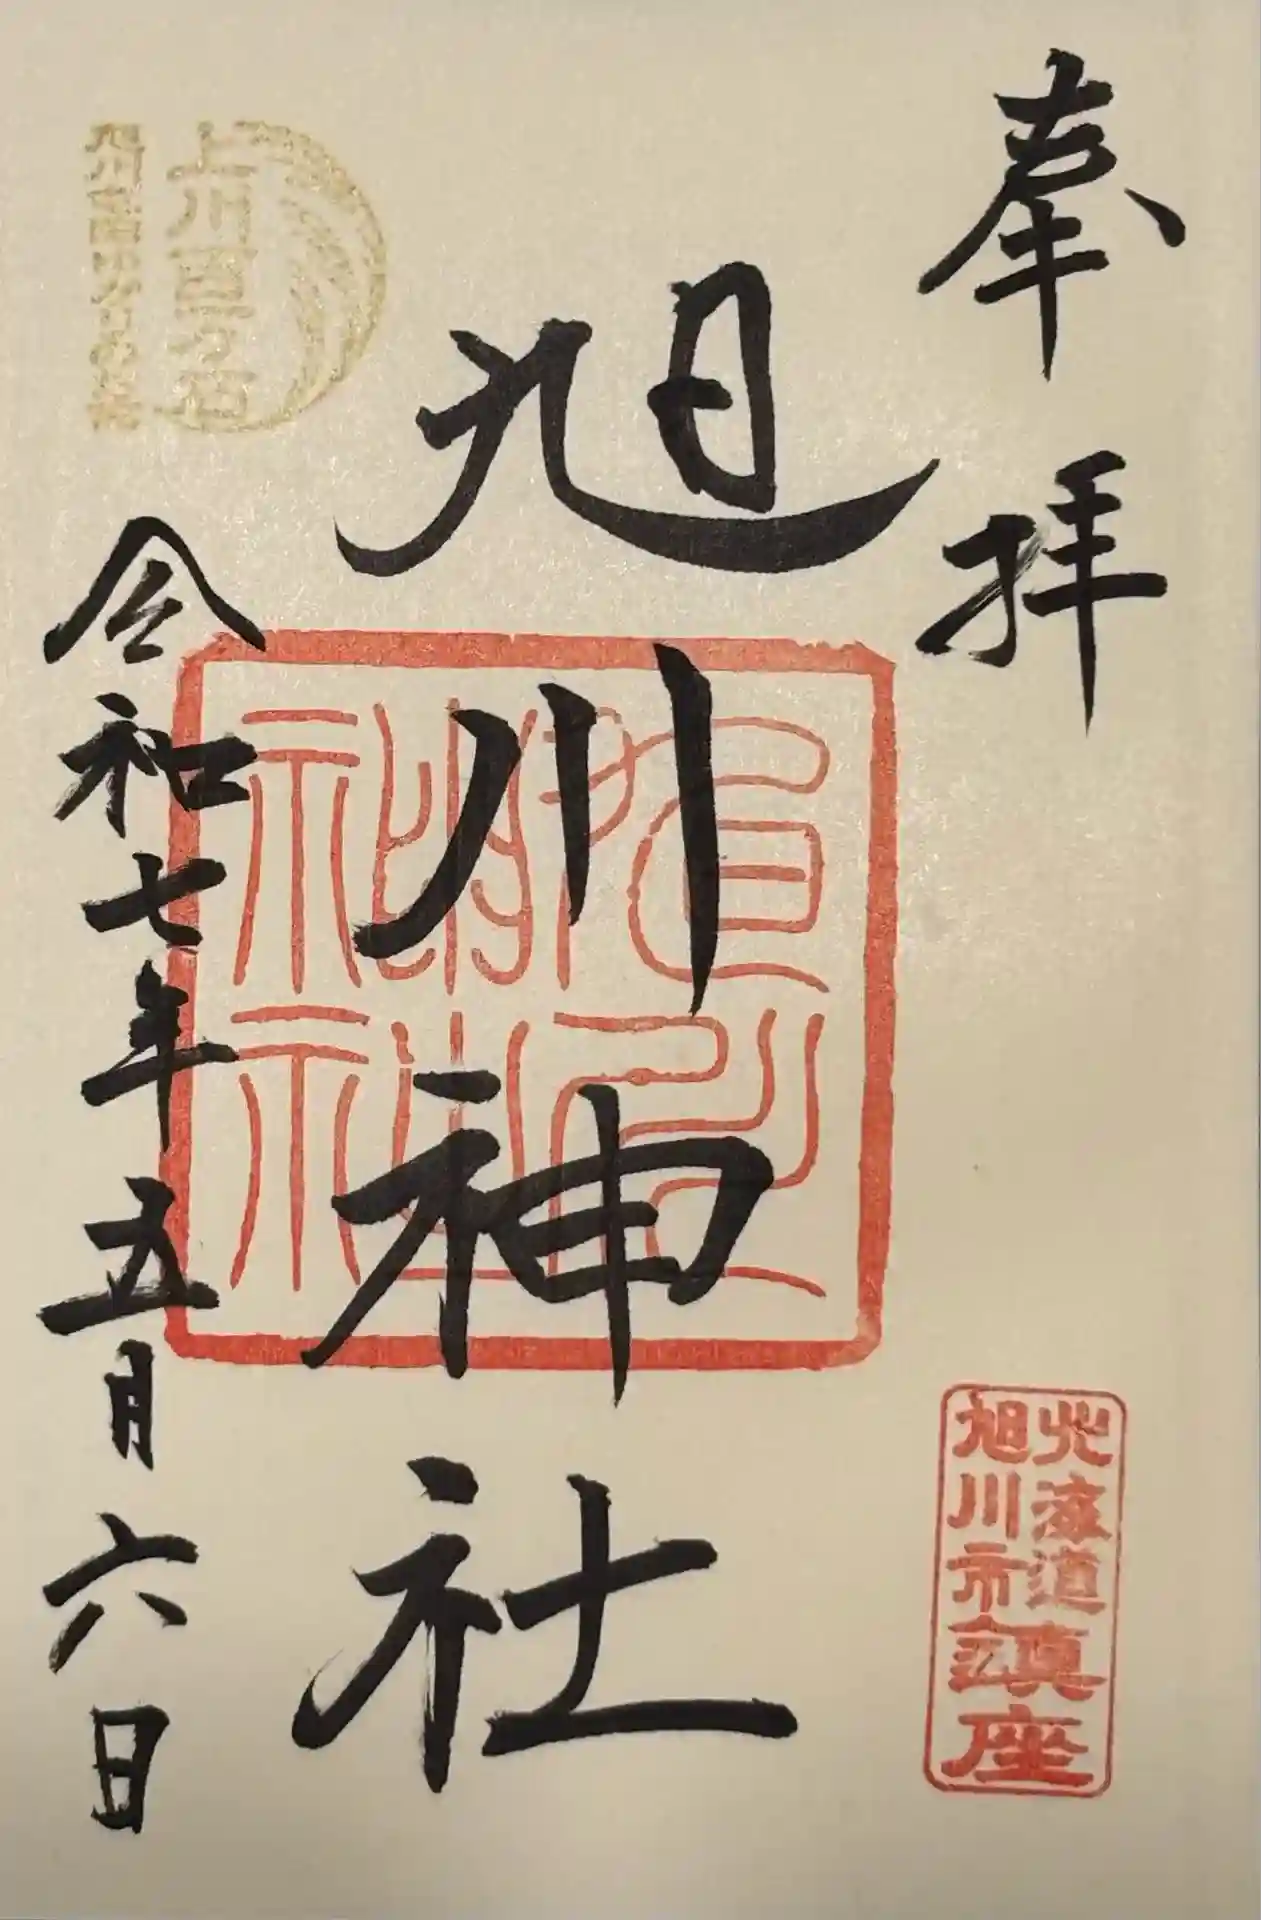 奉拝
北海道
旭川市
鎮座
旭川神社
旭川神社
上川百万石
令和七年五月六日